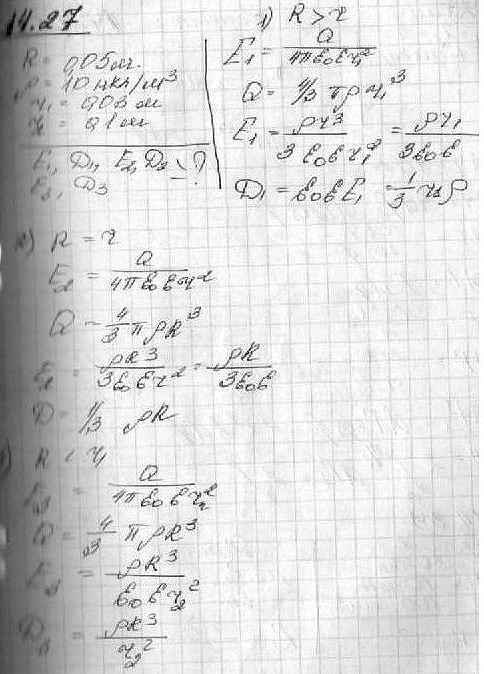 14.27
R = 0,05 м.
ρ = 10 нкл/м³
r₁ = 0,03 м
r₂ = 0,1 м
E₁, D₁, E₂, D₂ - ?
E₃, D₃
1) R > r
E₁ = Q / 4πε₀εr₁²
Q = 4/3 πρr₁³
E₁ = ρr³ / 3ε₀εr₁² = ρr₁ / 3ε₀ε
D₁ = ε₀εE₁ = 1/3 r₁ρ
2) R = r
E₂ = Q / 4πε₀εr²
Q = 4/3 πρR³
E₂ = ρR³ / 3ε₀εr² = ρR / 3ε₀ε
D = 1/3 ρR
) R < r₁
E₃ = Q / 4πε₀εr₂²
Q = 4/3 πρR³
E₃ = ρR³ / ε₀εr₂²
D₃ = ρR³ / r₂²